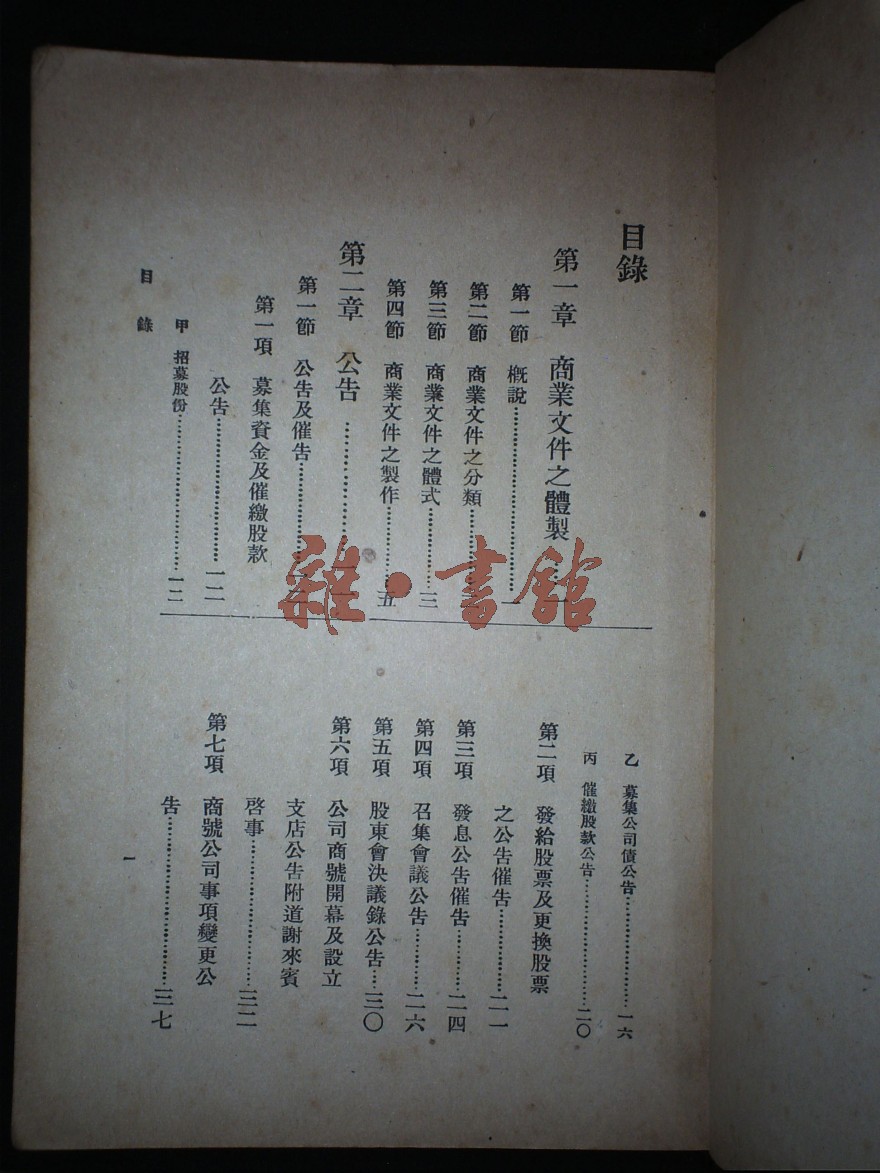 目錄
第一章 商業文件之體製……一
第一節 概說……一
第二節 商業文件之分類……
第三節 商業文件之體式……三
第四節 商業文件之製作……五
第二章 公告……
第一節 公告及催告……
第一項 募集資金及催繳股款
公告……一二
甲 招募股份……一二
乙 募集公司債公告……一六
丙 催繳股款公告……二〇
第二項 發給股票及更換股票
之公告催告……二一
第三項 發息公告催告……二四
第四項 召集會議公告……二六
第五項 股東會決議錄公告……三〇
第六項 公司商號開幕及設立
支店公告附道謝來賓
啓事……三二
第七項 商號公司事項變更公
告……三七
目錄
一
雜·書館